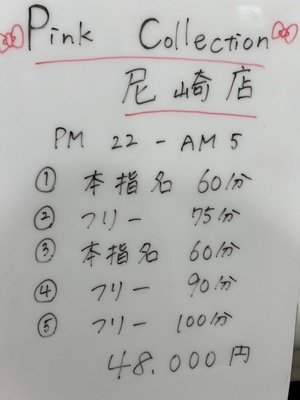 Pink Collection
尼崎店
PM 22 - AM 5
① 本指名 60分
② フリー 75分
③ 本指名 60分
④ フリー 90分
⑤ フリー 100分
48.000円